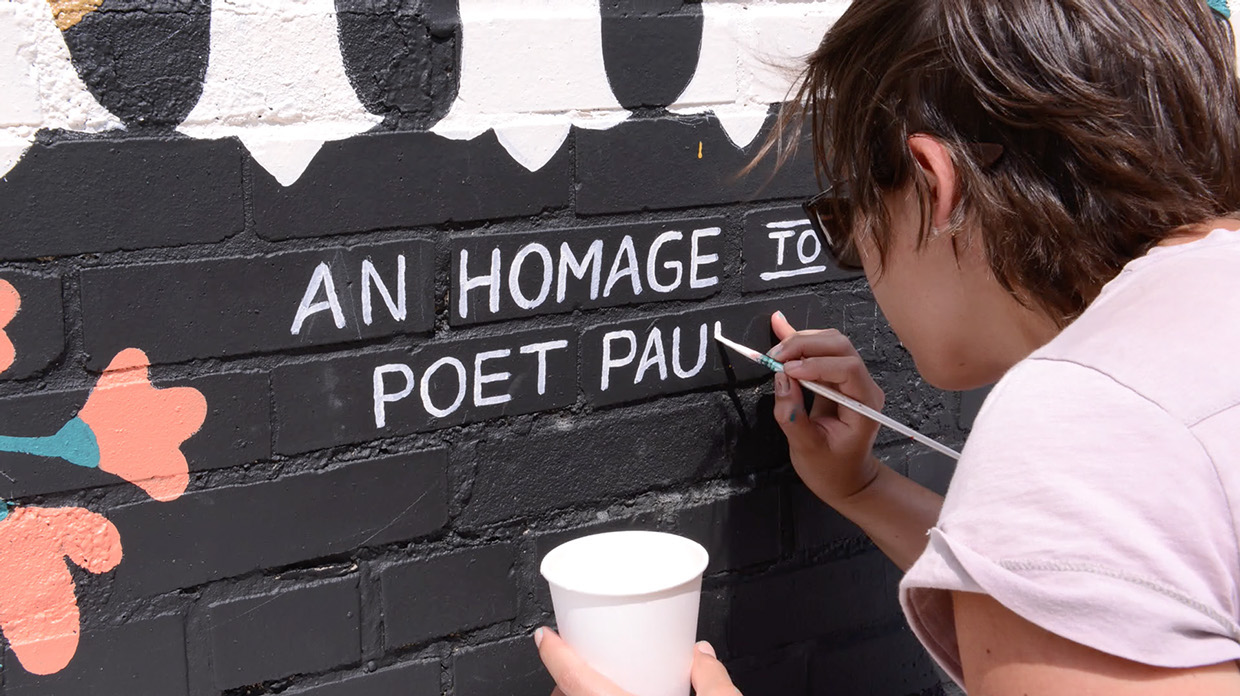 AN HOMAGE TO
POET PAU